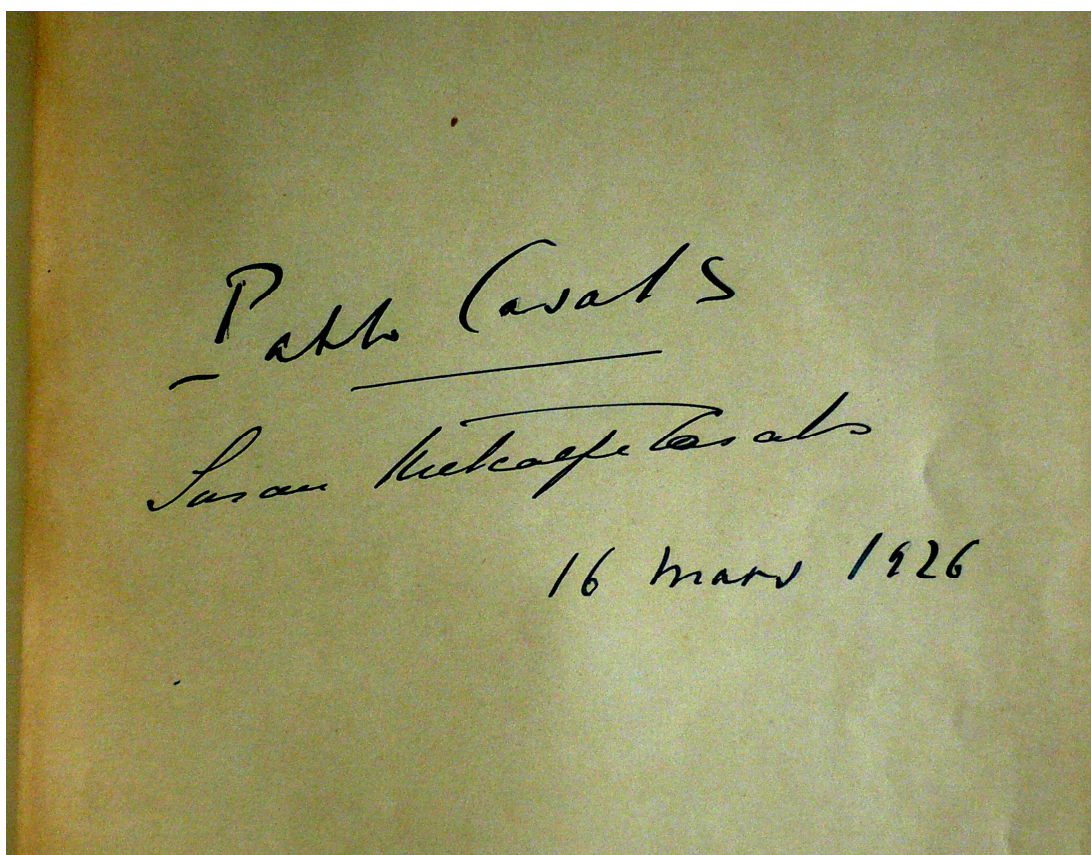 Pablo Casals
Susan Metcalfe Casals
16 mars 1926